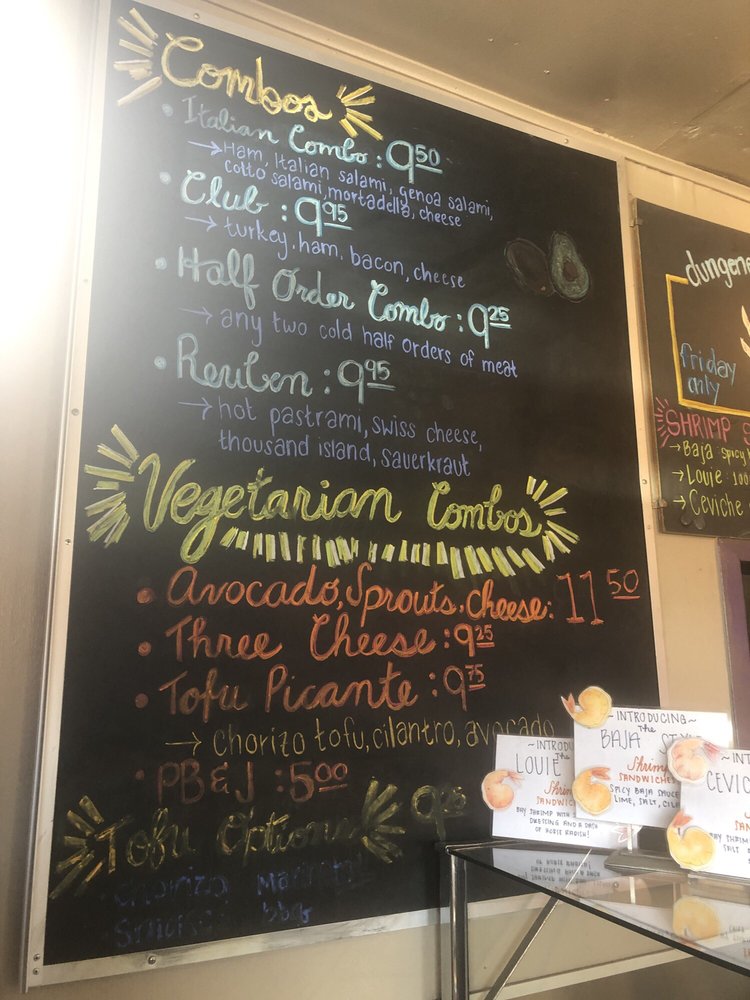 Combos
• Italian Combo : 9 50
→ Ham, Italian salami, genoa salami,
cotto salami, mortadella, cheese
• Club : 9 95
→ turkey, ham, bacon, cheese
• Half Order Combo : 9 25
→ any two cold half orders of meat
• Reuben : 9 95
→ hot pastrami, swiss cheese,
thousand island, sauerkraut
Vegetarian Combos
• Avocado, Sprouts, Cheese: 11 50
• Three Cheese : 9 25
• Tofu Picante : 9 75
→ Chorizo tofu, cilantro, avocado
• PB & J : 5 00
Tofu Options
bbq
friday
only
SHRIMP
→ Baja spicy
→ Louie
→ Ceviche
LOUIE
Shrimp
SANDWICH
BAY SHRIMP WITH
DRESSING AND A DASH
OF HORSE RADISH!
~INTRODUCING~
the
BAJA STYLE
Shrimp
SANDWICHES
SPICY BAJA SAUCE
LIME, SALT,